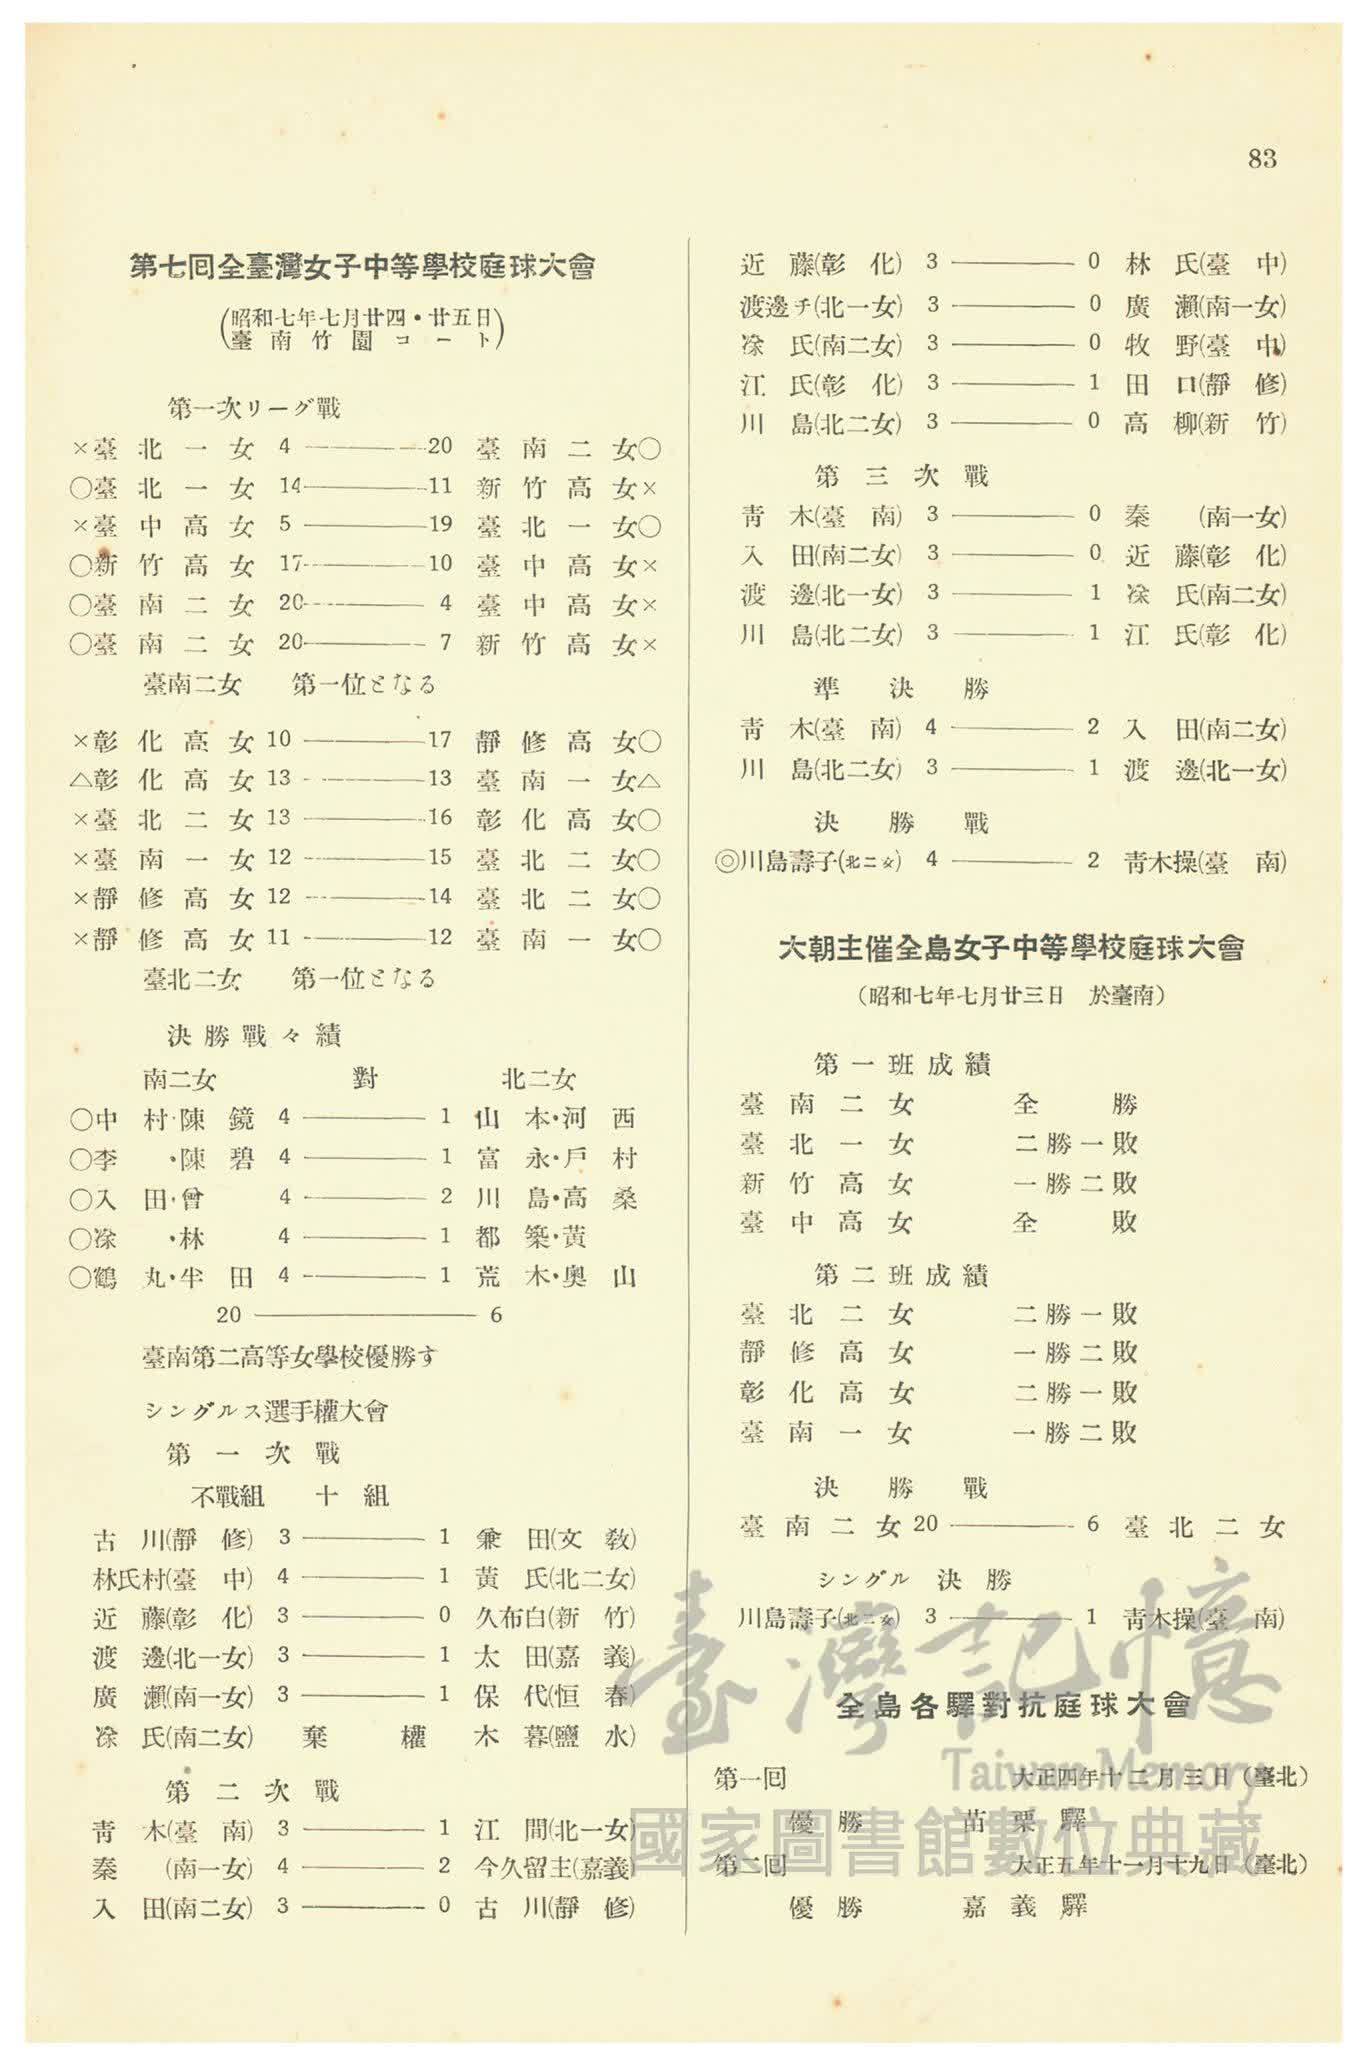 83
第七回全臺灣女子中等學校庭球大會
(昭和七年七月廿四・廿五日
臺南竹園コート)
第一次リーグ戰
×臺北一女 4 ——— 20 臺南二女○
○臺北一女 14 ——— 11 新竹高女×
×臺中高女 5 ——— 19 臺北一女○
○新竹高女 17 ——— 10 臺中高女×
○臺南二女 20 ——— 4 臺中高女×
○臺南二女 20 ——— 7 新竹高女×
臺南二女 第一位となる
×彰化高女 10 ——— 17 靜修高女○
△彰化高女 13 ——— 13 臺南一女△
×臺北二女 13 ——— 16 彰化高女○
×臺南一女 12 ——— 15 臺北二女○
×靜修高女 12 ——— 14 臺北二女○
×靜修高女 11 ——— 12 臺南一女○
臺北二女 第一位となる
決勝戰々績
南二女 對 北二女
○中村・陳鏡 4 ——— 1 山本・河西
○李・陳碧 4 ——— 1 富永・戶村
○入田・曾 4 ——— 2 川島・高桑
○涂・林 4 ——— 1 都築・黃
○鶴丸・半田 4 ——— 1 荒木・奧山
20 ——— 6
臺南第二高等女學校優勝す
シングルス選手權大會
第一次戰
不戰組 十組
古川(靜修) 3 ——— 1 兼田(文敎)
林氏村(臺中) 4 ——— 1 黃氏(北二女)
近藤(彰化) 3 ——— 0 久布白(新竹)
渡邊(北一女) 3 ——— 1 太田(嘉義)
廣瀨(南一女) 3 ——— 1 保代(恒春)
涂氏(南二女) 棄權 木暮(鹽水)
第二次戰
靑木(臺南) 3 ——— 1 江間(北一女)
秦(南一女) 4 ——— 2 今久留主(嘉義)
入田(南二女) 3 ——— 0 古川(靜修)
近藤(彰化) 3 ——— 0 林氏(臺中)
渡邊チ(北一女) 3 ——— 0 廣瀨(南一女)
涂氏(南二女) 3 ——— 0 牧野(臺中)
江氏(彰化) 3 ——— 1 田口(靜修)
川島(北二女) 3 ——— 0 高柳(新竹)
第三次戰
靑木(臺南) 3 ——— 0 秦(南一女)
入田(南二女) 3 ——— 0 近藤(彰化)
渡邊(北一女) 3 ——— 1 涂氏(南二女)
川島(北二女) 3 ——— 1 江氏(彰化)
準決勝
靑木(臺南) 4 ——— 2 入田(南二女)
川島(北二女) 3 ——— 1 渡邊(北一女)
決勝戰
◎川島壽子(北二女) 4 ——— 2 靑木操(臺南)
大朝主催全島女子中等學校庭球大會
(昭和七年七月廿三日 於臺南)
第一班成績
臺南二女 全勝
臺北一女 二勝一敗
新竹高女 一勝二敗
臺中高女 全敗
第二班成績
臺北二女 二勝一敗
靜修高女 一勝二敗
彰化高女 二勝一敗
臺南一女 一勝二敗
決勝戰
臺南二女 20 ——— 6 臺北二女
シングル決勝
川島壽子(北二女) 3 ——— 1 靑木操(臺南)
全島各驛對抗庭球大會
第一回 大正四年十二月三日(臺北)
優勝 苗栗驛
第二回 大正五年十一月十九日(臺北)
優勝 嘉義驛
臺灣記憶
Taiwan Memory
國家圖書館數位典藏